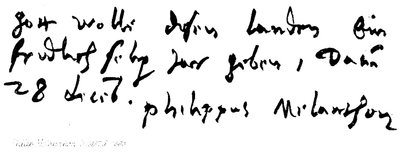 gott wolle diesen landen ein
fridlich selig jar geben, Datū
28 decēb. philippus Melanthon